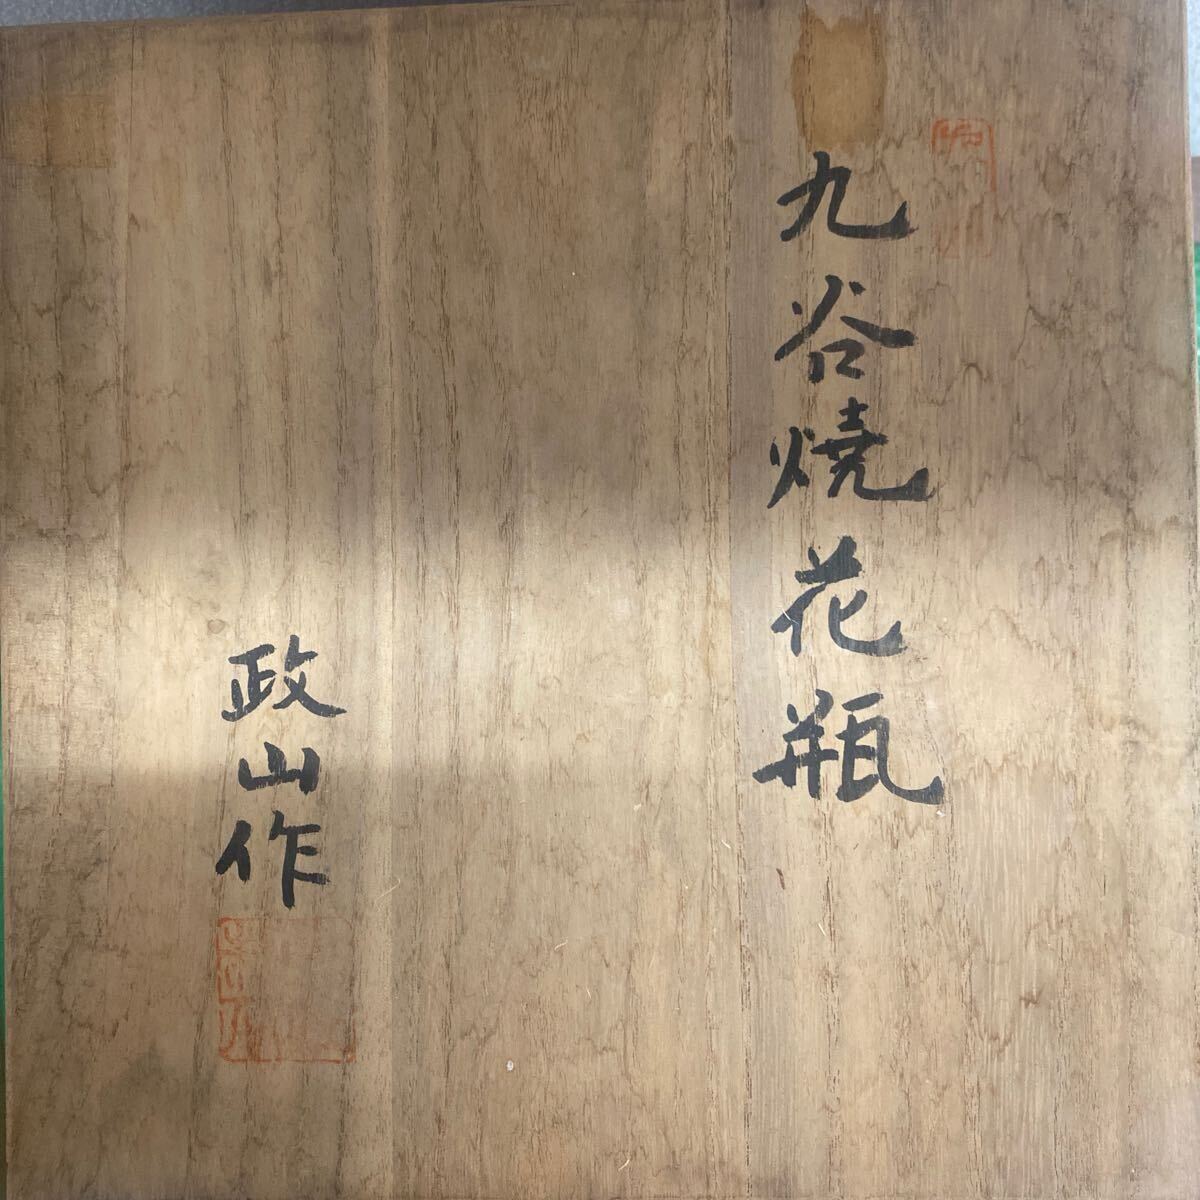 九谷焼花瓶
政山作